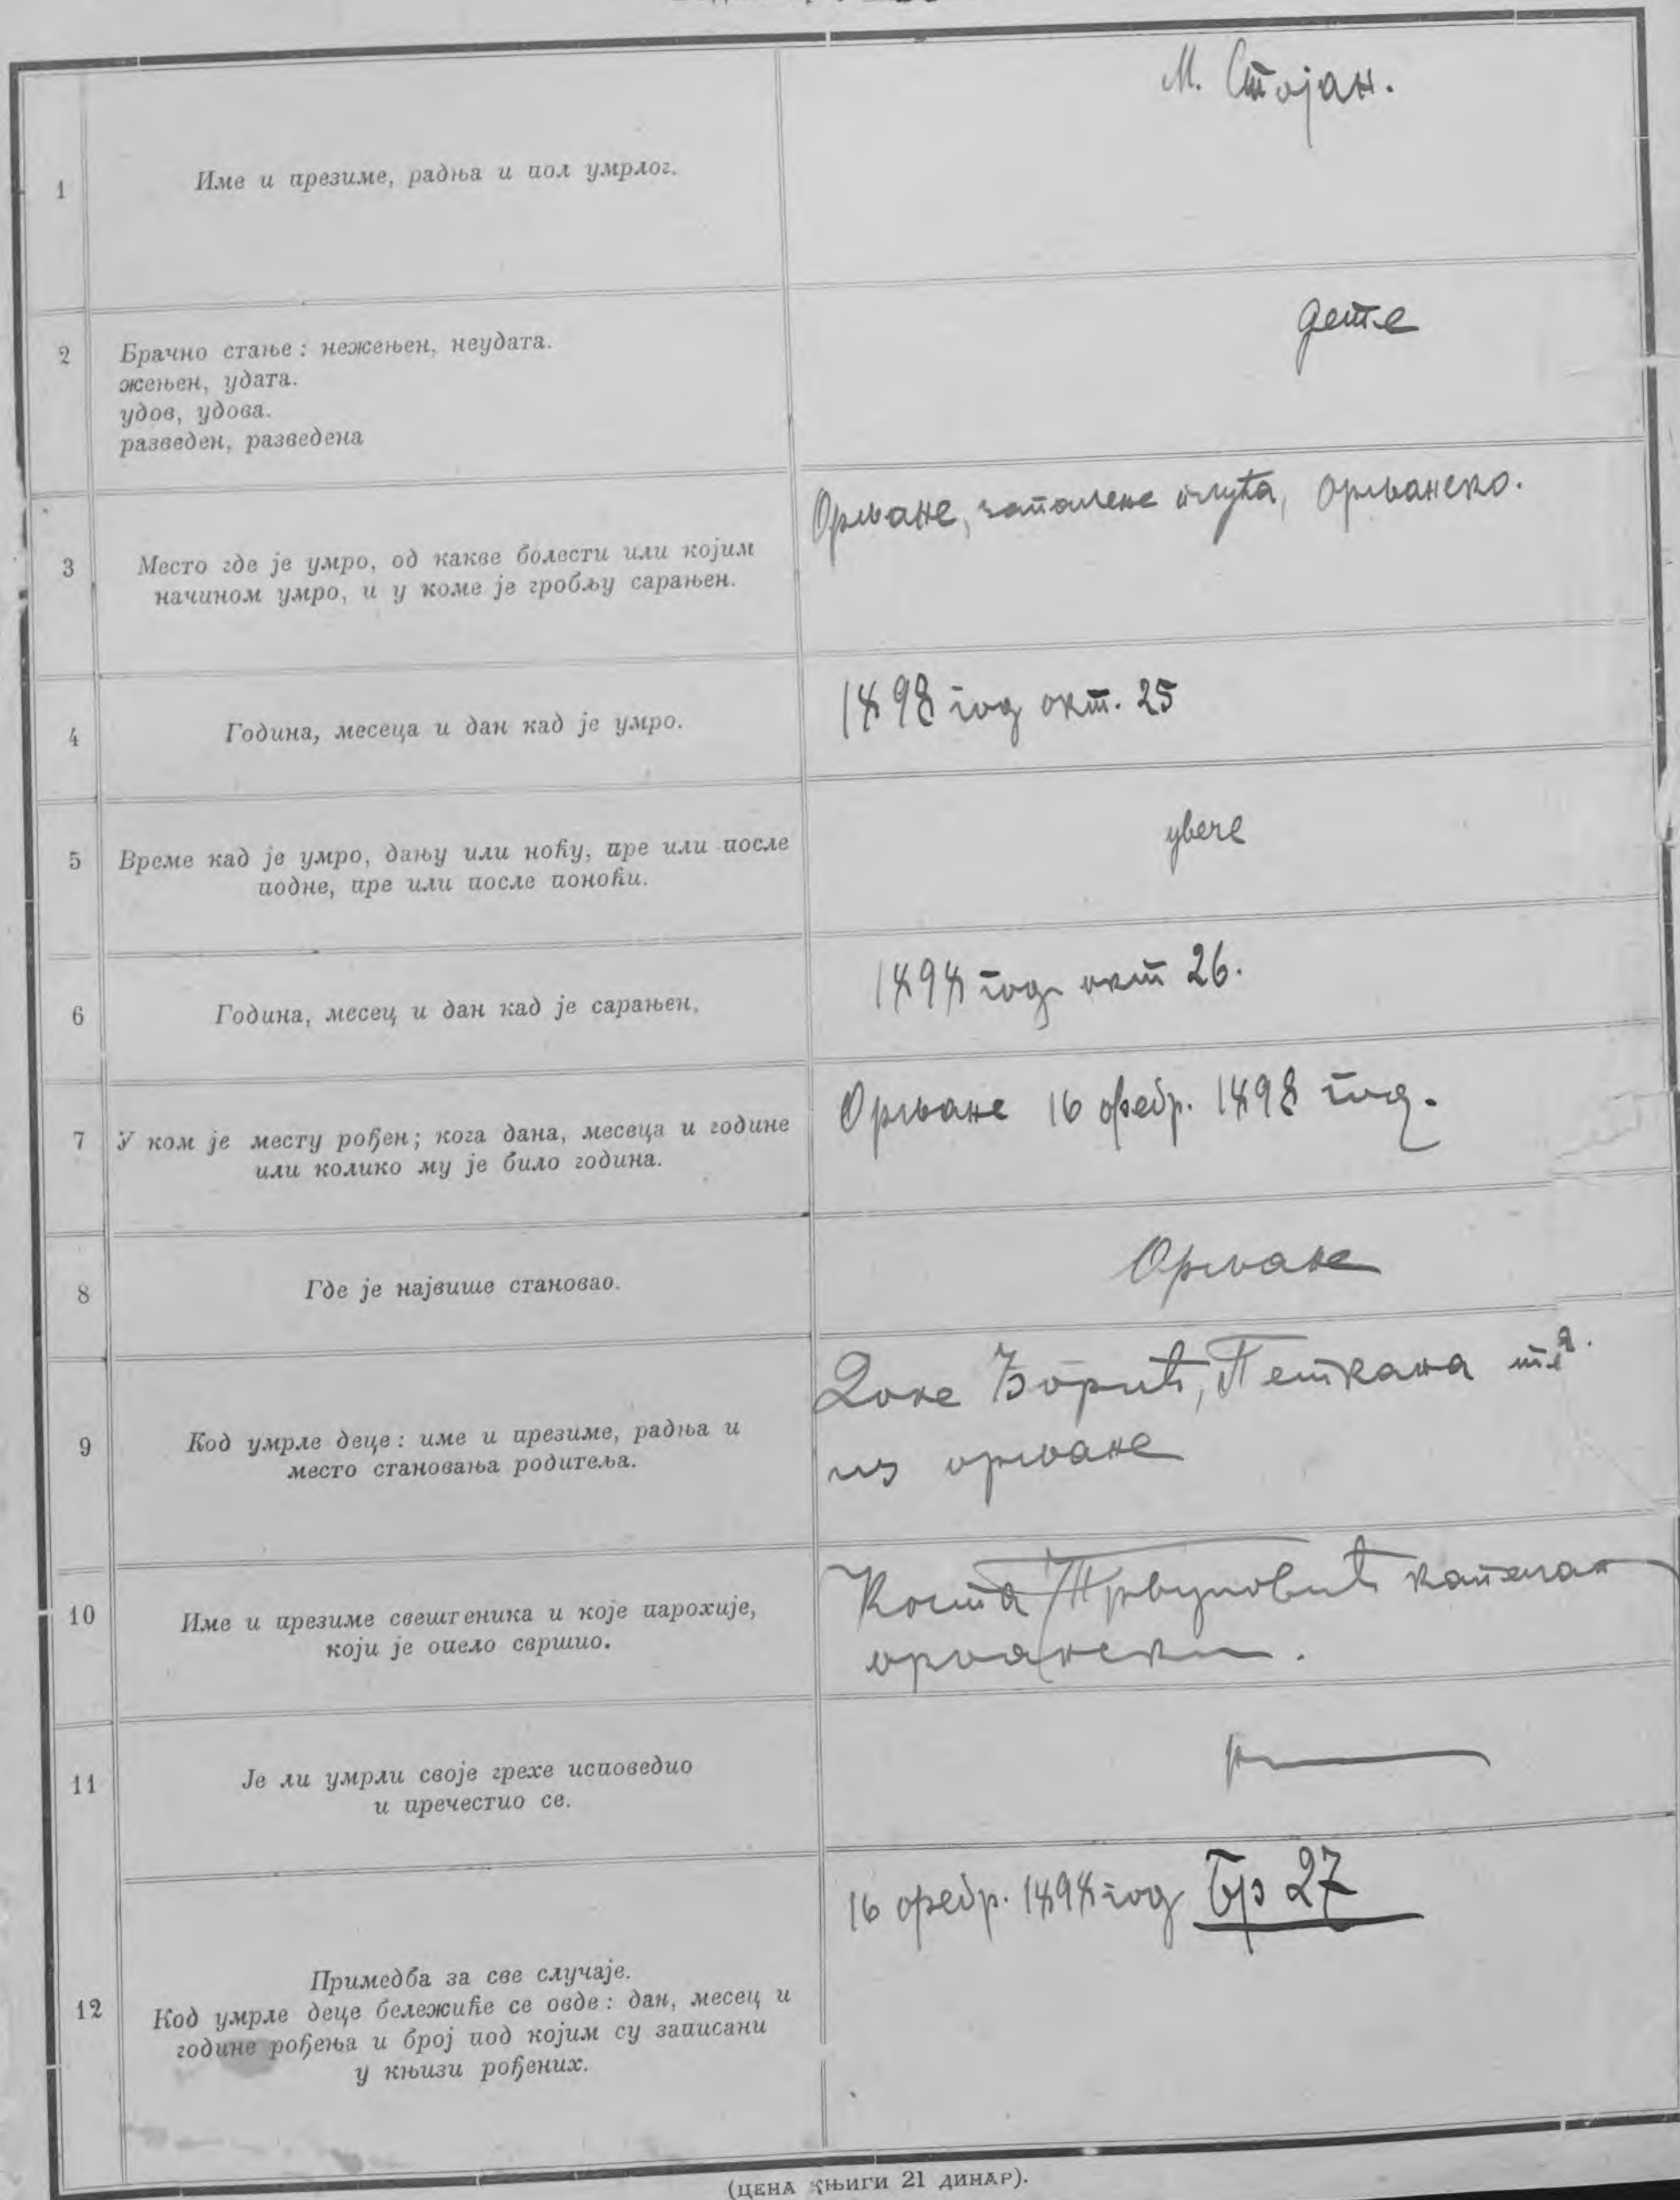 1
Име и презиме, радња и пол умрлог.
М. Стојан.
2
Брачно стање: нежењен, неудата.
жењен, удата.
удов, удова.
разведен, разведена
дете
3
Место где је умро, од какве болести или којим
начином умро, и у коме је гробљу сарањен.
Орљане, запалење плућа, Орљанско.
4
Година, месеца и дан кад је умро.
1898 год окт. 25
5
Време кад је умро, дању или ноћу, пре или после
подне, пре или после поноћи.
увече
6
Година, месец и дан кад је сарањен,
1898 год окт 26.
7
У ком је месту рођен; кога дана, месеца и године
или колико му је било година.
Орљане 16 фебр. 1898 год.
8
Где је највише становао.
Орљане
9
Код умрле деце: име и презиме, радња и
место становања родитеља.
Ђорић, Петкана
из орљане
10
Име и презиме свештеника и које парохије,
који је опело свршио.
Коста капелан
орљански.
11
Је ли умрли своје грехе исповедио
и пречестио се.
12
Примедба за све случаје.
Код умрле деце бележиће се овде: дан, месец и
године рођења и број под којим су записани
у књизи рођених.
16 фебр. 1898 год Бр 27
(ЦЕНА КЊИГИ 21 ДИНАР).